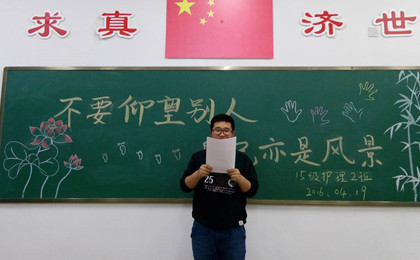 求真 济世
不要仰望别人
己亦是风景
15级护理2班
2016.04.19
25